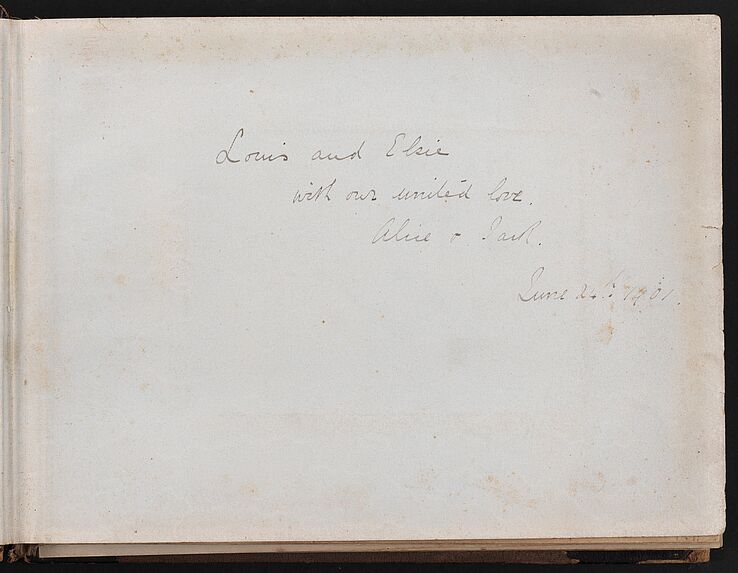 Louis and Elsie
with our united love.
Alice & Jack.
June 24th 1901.